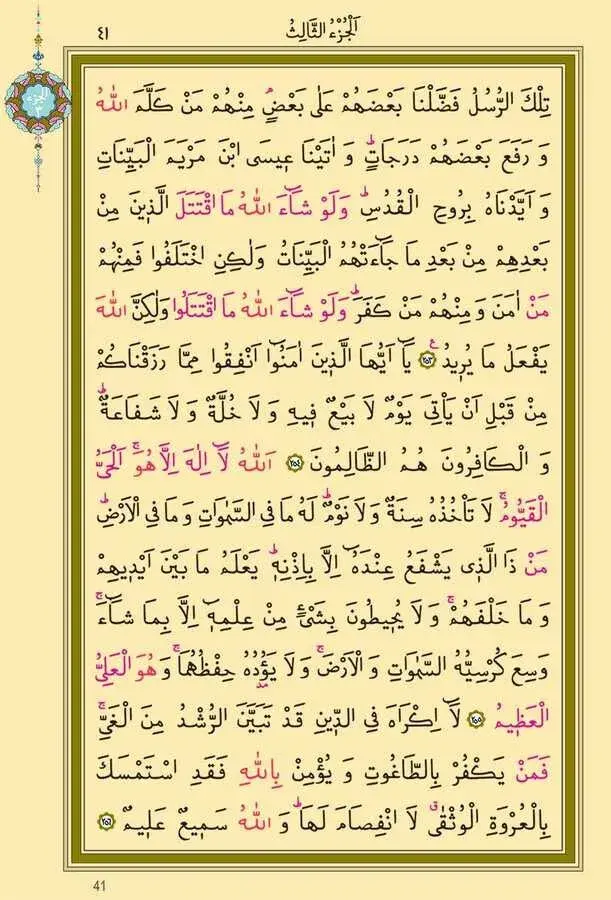 ٤١ اَلْجُزْءُ الثَّالِثُ
تِلْكَ الرُّسُلُ فَضَّلْنَا بَعْضَهُمْ عَلٰى بَعْضٍۢ مِنْهُمْ مَنْ كَلَّمَ اللّٰهُ
وَ رَفَعَ بَعْضَهُمْ دَرَجَاتٍۜ وَ اٰتَيْنَا عٖيسَى ابْنَ مَرْيَمَ الْبَيِّنَاتِ
وَ اَيَّدْنَاهُ بِرُوحِ الْقُدُسِۜ وَلَوْ شَٓاءَ اللّٰهُ مَا اقْتَتَلَ الَّذٖينَ مِنْ
بَعْدِهِمْ مِنْ بَعْدِ مَا جَٓاءَتْهُمُ الْبَيِّنَاتُ وَلٰكِنِ اخْتَلَفُوا فَمِنْهُمْ
مَنْ اٰمَنَ وَ مِنْهُمْ مَنْ كَفَرَۜ وَلَوْ شَٓاءَ اللّٰهُ مَا اقْتَتَلُوا وَلٰكِنَّ اللّٰهَ
يَفْعَلُ مَا يُرٖيدُ ﴿٢٥٣﴾ يَٓا اَيُّهَا الَّذٖينَ اٰمَنُٓوا اَنْفِقُوا مِمَّا رَزَقْنَاكُمْ
مِنْ قَبْلِ اَنْ يَاْتِىَ يَوْمٌ لَا بَيْعٌ فٖيهِ وَ لَا خُلَّةٌ وَ لَا شَفَاعَةٌۜ
وَ الْكَافِرُونَ هُمُ الظَّالِمُونَ ﴿٢٥٤﴾ اَللّٰهُ لَٓا اِلٰهَ اِلَّا هُوَۚ اَلْحَىُّ
الْقَيُّومُۚ لَا تَاْخُذُهُ سِنَةٌ وَ لَا نَوْمٌۜ لَهُ مَا فِى السَّمٰوَاتِ وَ مَا فِى الْاَرْضِۜ
مَنْ ذَا الَّذٖى يَشْفَعُ عِنْدَهُٓ اِلَّا بِاِذْنِهٖۜ يَعْلَمُ مَا بَيْنَ اَيْدٖيهِمْ
وَ مَا خَلْفَهُمْۚ وَ لَا يُحٖيطُونَ بِشَىْءٍ مِنْ عِلْمِهٖٓ اِلَّا بِمَا شَٓاءَۚ
وَسِعَ كُرْسِيُّهُ السَّمٰوَاتِ وَ الْاَرْضَۚ وَ لَا يَؤُ۫دُهُ حِفْظُهُمَاۚ وَ هُوَ الْعَلِىُّ
الْعَظٖيمُ ﴿٢٥٥﴾ لَٓا اِكْرَاهَ فِى الدّٖينِ قَدْ تَبَيَّنَ الرُّشْدُ مِنَ الْغَىِّۚ
فَمَنْ يَكْفُرْ بِالطَّاغُوتِ وَ يُؤْمِنْ بِاللّٰهِ فَقَدِ اسْتَمْسَكَ
بِالْعُرْوَةِ الْوُثْقٰىۗ لَا انْفِصَامَ لَهَاۜ وَ اللّٰهُ سَمٖيعٌ عَلٖيمٌ ﴿٢٥٦﴾
41